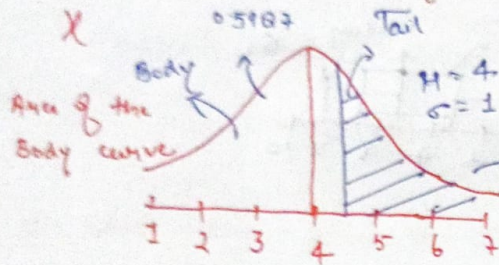 X 0.5987 Tail
Body
Area of the
Body curve
μ = 4
σ = 1
1 2 3 4 5 6 7